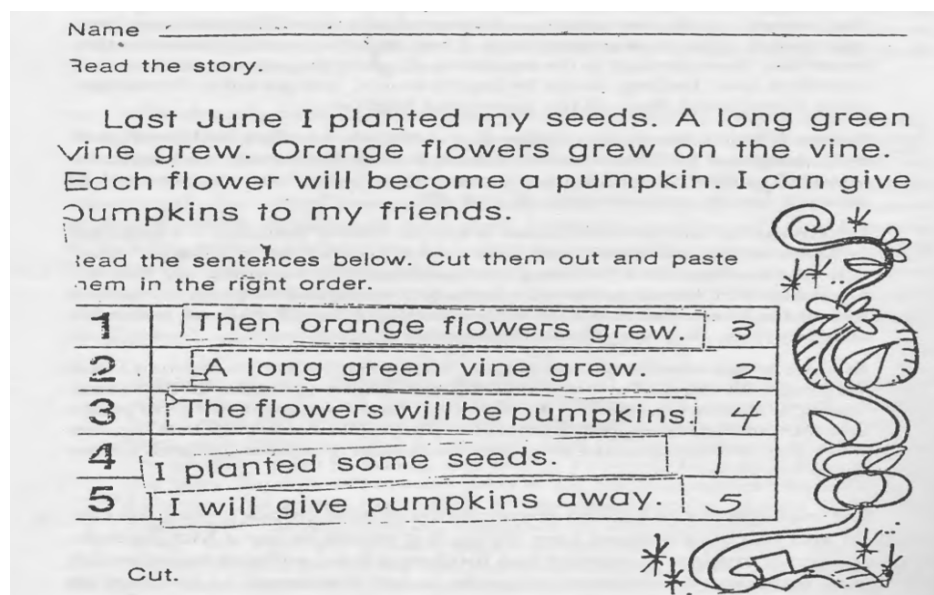 Name
Read the story.
Last June I planted my seeds. A long green
vine grew. Orange flowers grew on the vine.
Each flower will become a pumpkin. I can give
pumpkins to my friends.
Read the sentences below. Cut them out and paste
them in the right order.
1 Then orange flowers grew. 3
2 A long green vine grew. 2
3 The flowers will be pumpkins. 4
4 I planted some seeds. 1
5 I will give pumpkins away. 5
Cut.